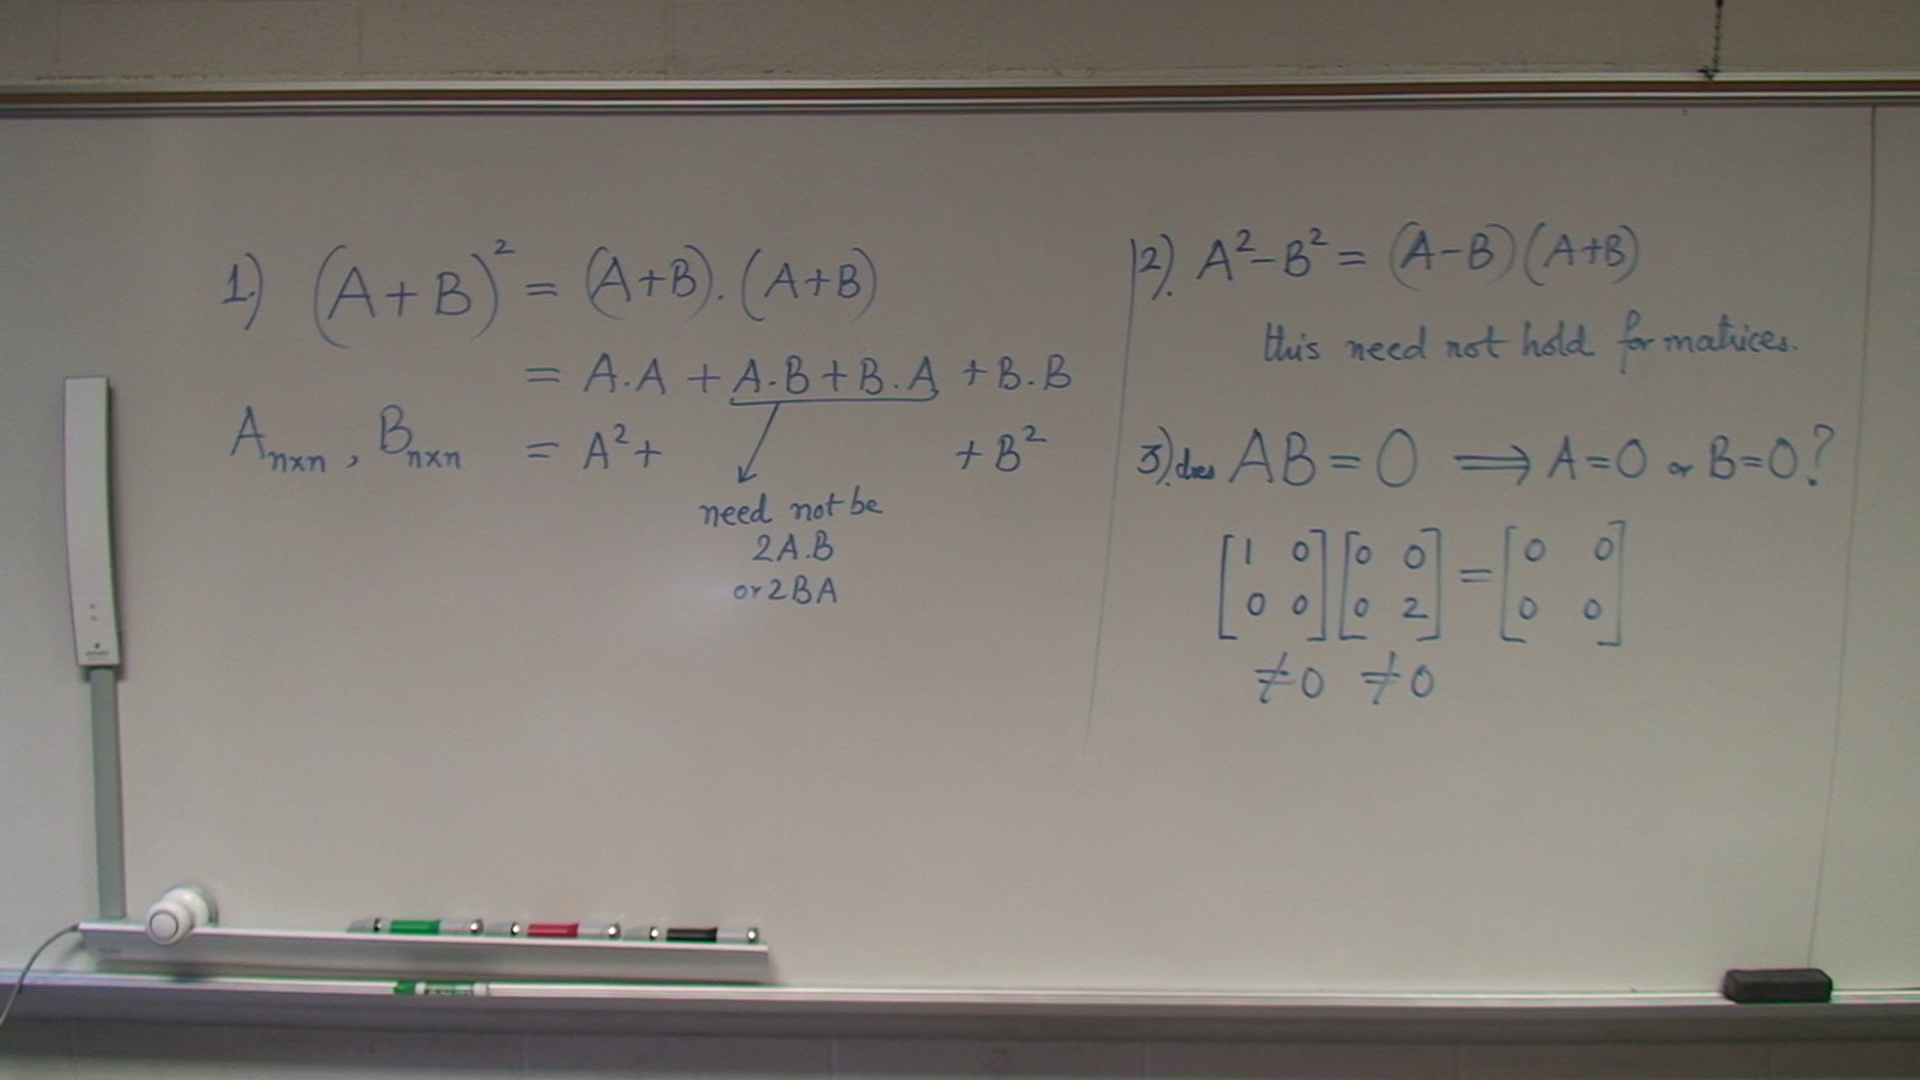 1.) (A+B)² = (A+B).(A+B)
= A.A + A.B + B.A + B.B
Aₙₓₙ, Bₙₓₙ = A² + + B²
need not be
2A.B
or 2BA
2). A²-B² = (A-B)(A+B)
this need not hold for matrices.
3). does AB = 0 ⟹ A=0 or B=0?
[1 0] [0 0] = [0 0]
[0 0] [0 2] [0 0]
≠0 ≠0